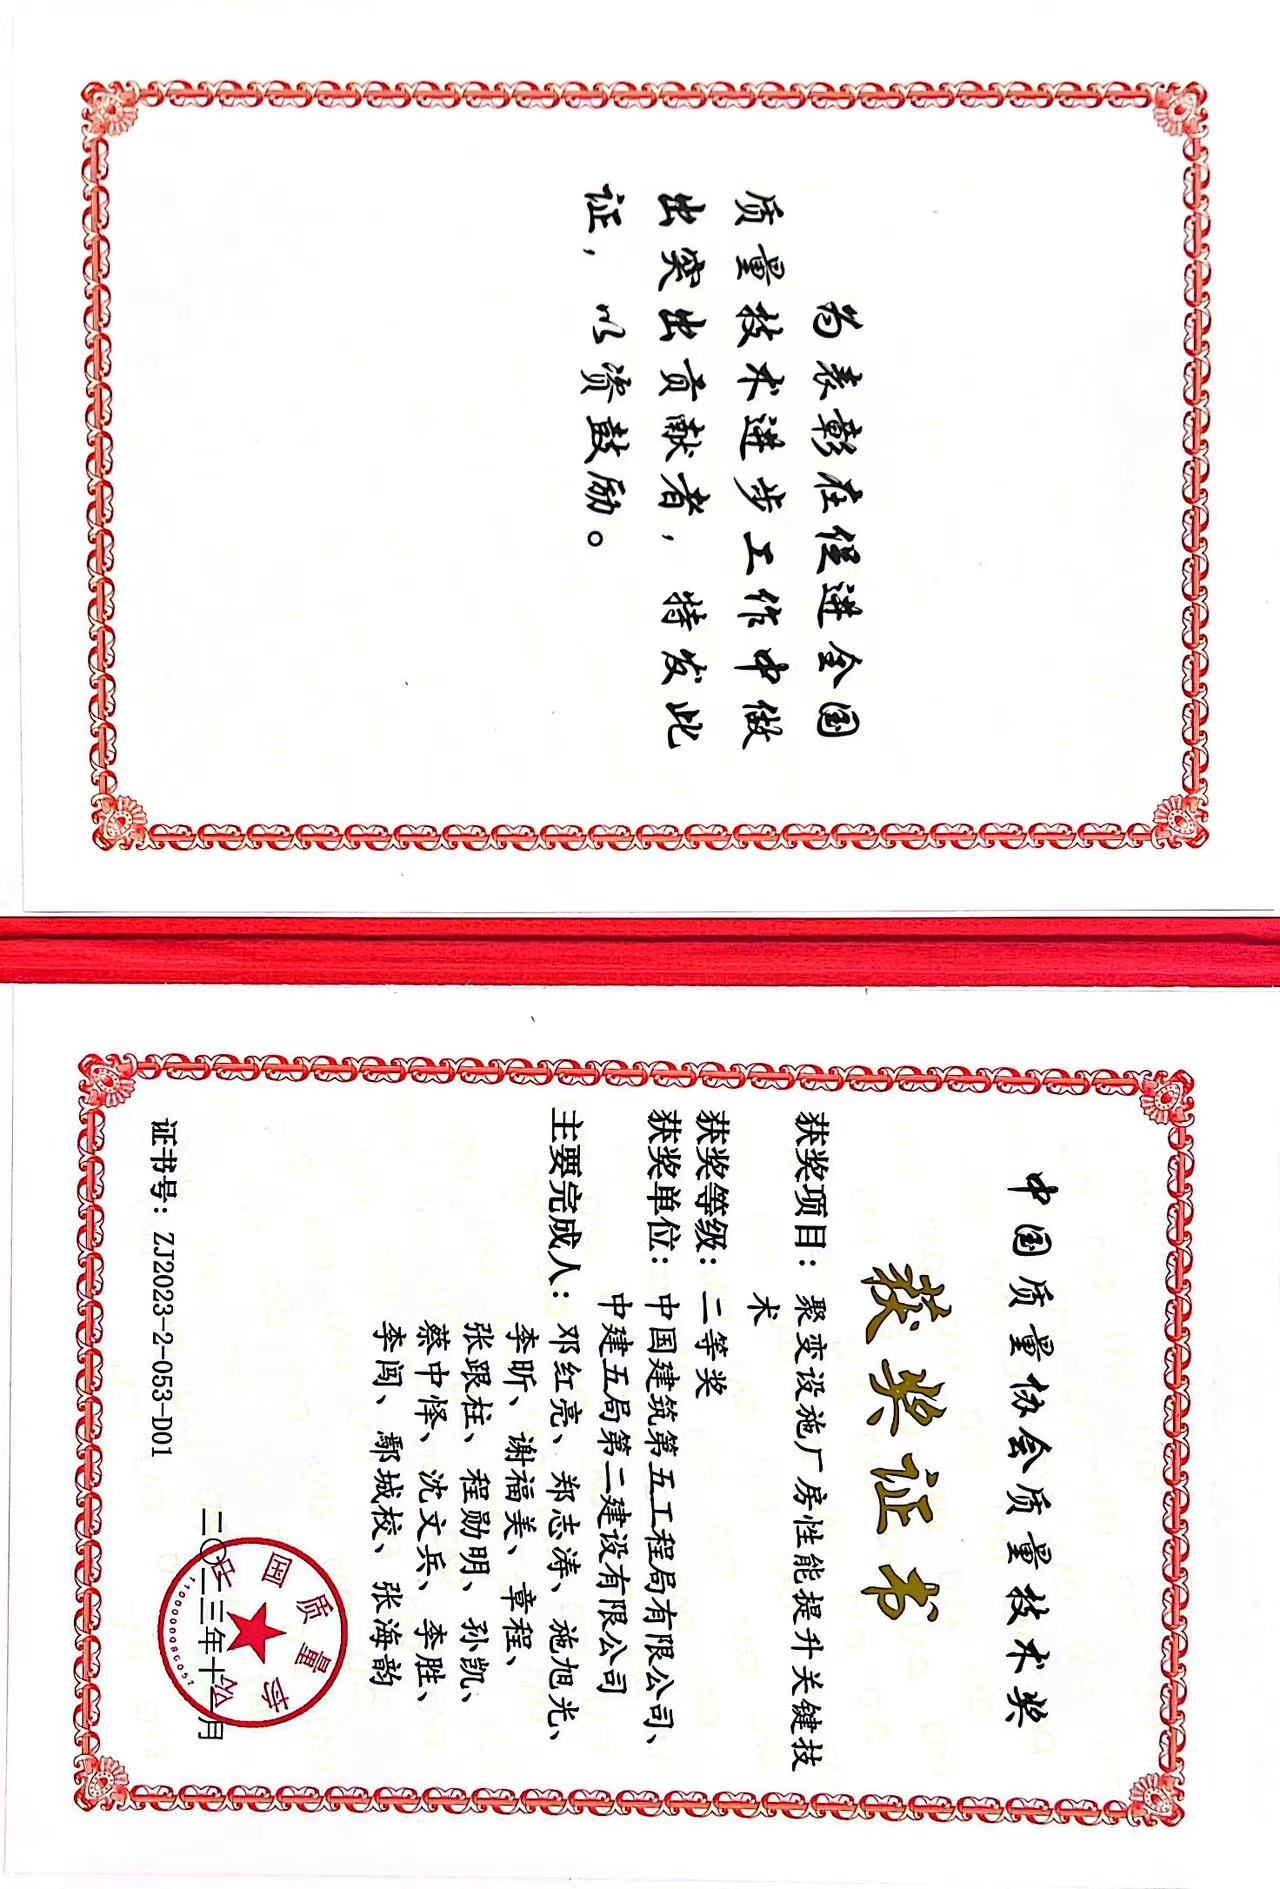 为表彰在促进全国
质量技术进步工作中做
出突出贡献者，特发此
证，以资鼓励。
中国质量协会质量技术奖
获奖证书
获奖项目：聚变设施厂房性能提升关键技
术
获奖等级：二等奖
获奖单位：中国建筑第五工程局有限公司、
中建五局第二建设有限公司
主要完成人：邓红亮、郑志涛、施旭光、
李昕、谢福美、章程、
张跟柱、程勋明、孙凯、
蔡中怿、沈文兵、李胜、
李闯、鄢城校、张海韵
证书号：ZJ2023-2-053-D01